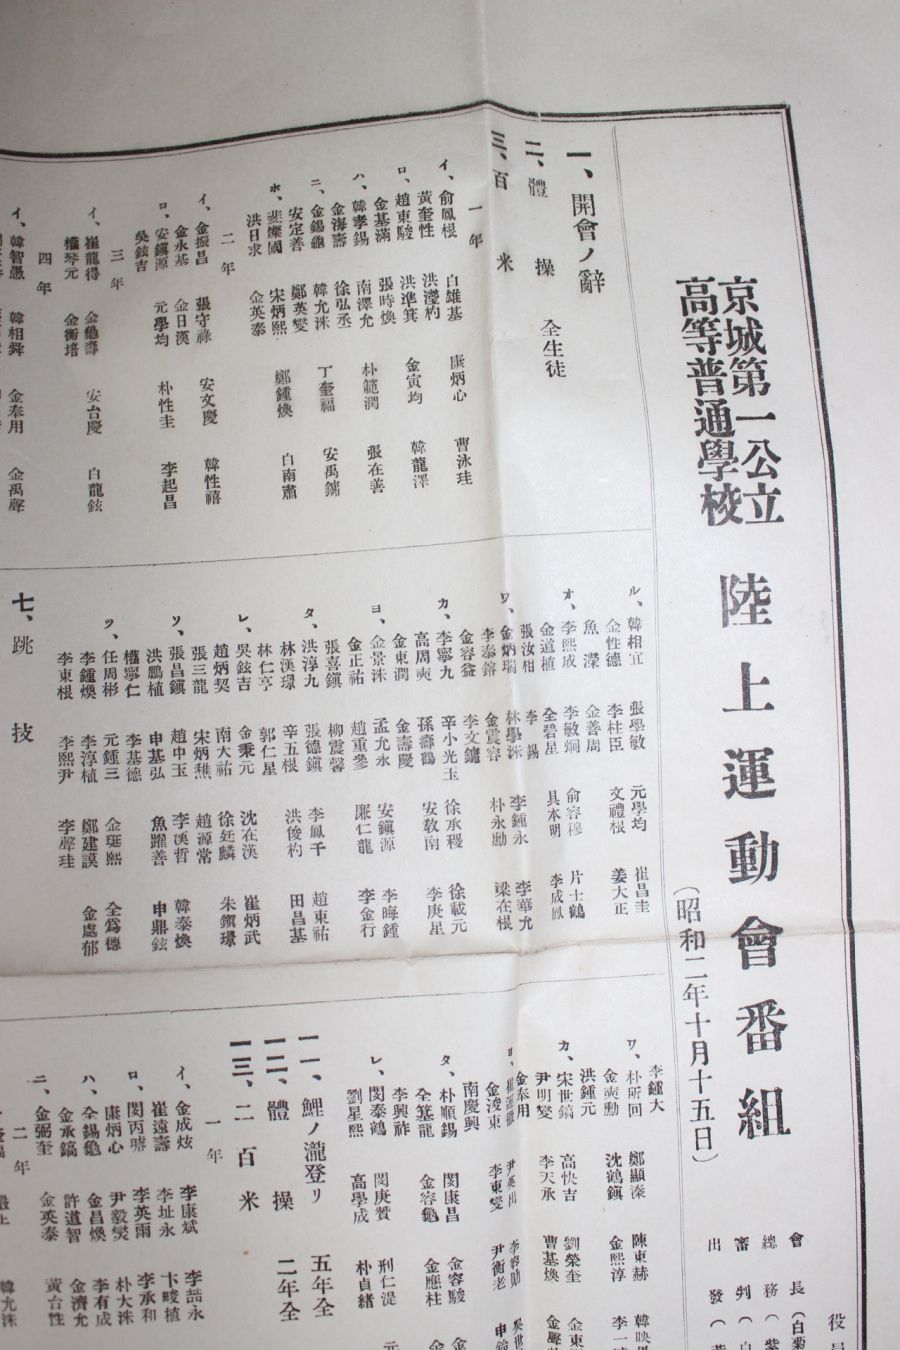 京城第一公立
高等普通學校
陸上運動會番組
(昭和二年十月十五日)
役員
會長(白菊
總務(紫
審判(白
出發(黃
一、開會ノ辭
二、體操 全生徒
三、百米
一年
イ、俞鳳根 白雄基 康炳心 曹泳珪
黃奎性 洪瀅杓
ロ、趙東駿 洪準箕 金寅均 韓龍澤
金基滿 張時煥
ハ、韓孝錫 南澤允 朴範潤 張在善
金海壽 徐弘丞
ニ、金錫龜 韓允洙 丁奎福 安禹鏞
安定善 鄭英燮
ホ、裴燦國 宋炳熙 鄭鍾煥 白南肅
洪日求 金英泰
二年
イ、金振昌 張守祿 安文慶 韓性禧
金永基 金日漢
ロ、安鎭源 元學均 朴性圭 李起昌
吳鉉吉
三年
イ、崔龍得 金龜壽 安台慶 白龍鉉
權琴元 金衡培
四年
イ、韓智愚 韓相舜 金奉用 金禹聲
ル、韓相宜 張學敏 元學均 崔昌圭
金性德 李柱臣 文禮根 姜大正
魚濚 金善周
オ、李熙成 李敏炯 俞容穆 片士鶴
金道植 全碧星 具本明 李成鳳
張汝相 李錫
ワ、金炳瑞 林學洙 李鍾永 李華允
李泰鎔 金震容 朴永勳 梁在根
金容益 李文鏞
カ、李寧九 辛小光玉 徐承稷 徐載元
高周奭 孫壽鶴 安敎南 李庚星
金東潤 金壽慶
ヨ、金景洙 孟允永 安鎭源 李晦鍾
金正祐 趙重參 廉仁龍 李金行
張喜鎭 柳震馨
タ、洪淳九 張德鎭 李鳳千 趙東祐
林漢璟 辛五根 洪俊杓 田昌基
林仁亨 郭仁星
レ、吳鉉吉 金秉元 沈在漢 崔炳武
趙炳契 南大祐 徐廷麟 朱鎭璟
張三龍 宋炳礁 趙源常
ソ、張昌鎭 趙中玉 李溪哲 韓泰煥
洪鵬植 申基弘 魚躍善 申鼎鉉
權寧仁 李基德
ツ、任周彬 元鍾三 金珽熙 全爲德
李鍾煥 李淳植 鄭建謨 金處郁
李東根 李熙尹 李聲珪
七、跳技
李鍾大
ワ、朴所回 鄭顯溱 陳東赫 韓映
金奭勳 沈鶴鎭 金熙淳 李一
洪鍾元
カ、宋世鎬 高快吉 劉榮奎 金東
尹明燮 李天承 曹基煥 金聲
金奉用
ヨ、 尹英出 李容勛 吳世
金浚東 李東燮 尹衡老 申
南慶興
タ、朴順錫 閔康昌 金容駿 金
全基龍 金容龜 金應柱 金
李興祚
レ、閔泰鶴 閔庚贊 刑仁湜 元
劉星熙 高學成 朴貞緖
一一、鯉ノ瀧登リ 五年全
一二、體操 二年全
一三、二百米
一年
イ、金成炫 李康斌 李喆永
崔遠壽 李址永 卞畯植
ロ、閔丙 李英雨 李承和
康炳心 尹毅燮 朴大洙
ハ、全錫龜 金昌煥 李有成
金承鎬 許道智 金濟允
ニ、金弼奎 金英泰 黃台性
二年
韓允洙